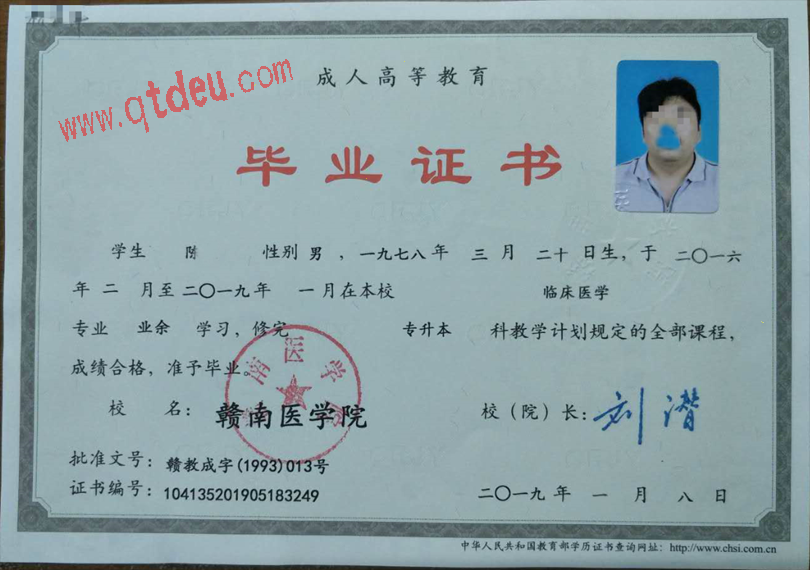 www.qtdeu.com
成人高等教育
毕业证书
学生 陈 性别 男 , 一九七八年 三 月 二十 日生, 于 二〇一六
年 二 月至 二〇一九年 一月在本校 临床医学
专业 业余 学习, 修完 专升本 科教学计划规定的全部课程,
成绩合格, 准予毕业。
南医学
校 名: 赣南医学院
校（院）长: 刘潜
批准文号: 赣教成字(1993)013号
证书编号: 104135201905183249
二〇一九年 一 月 八 日
中华人民共和国教育部学历证书查询网址: http://www.chsi.com.cn